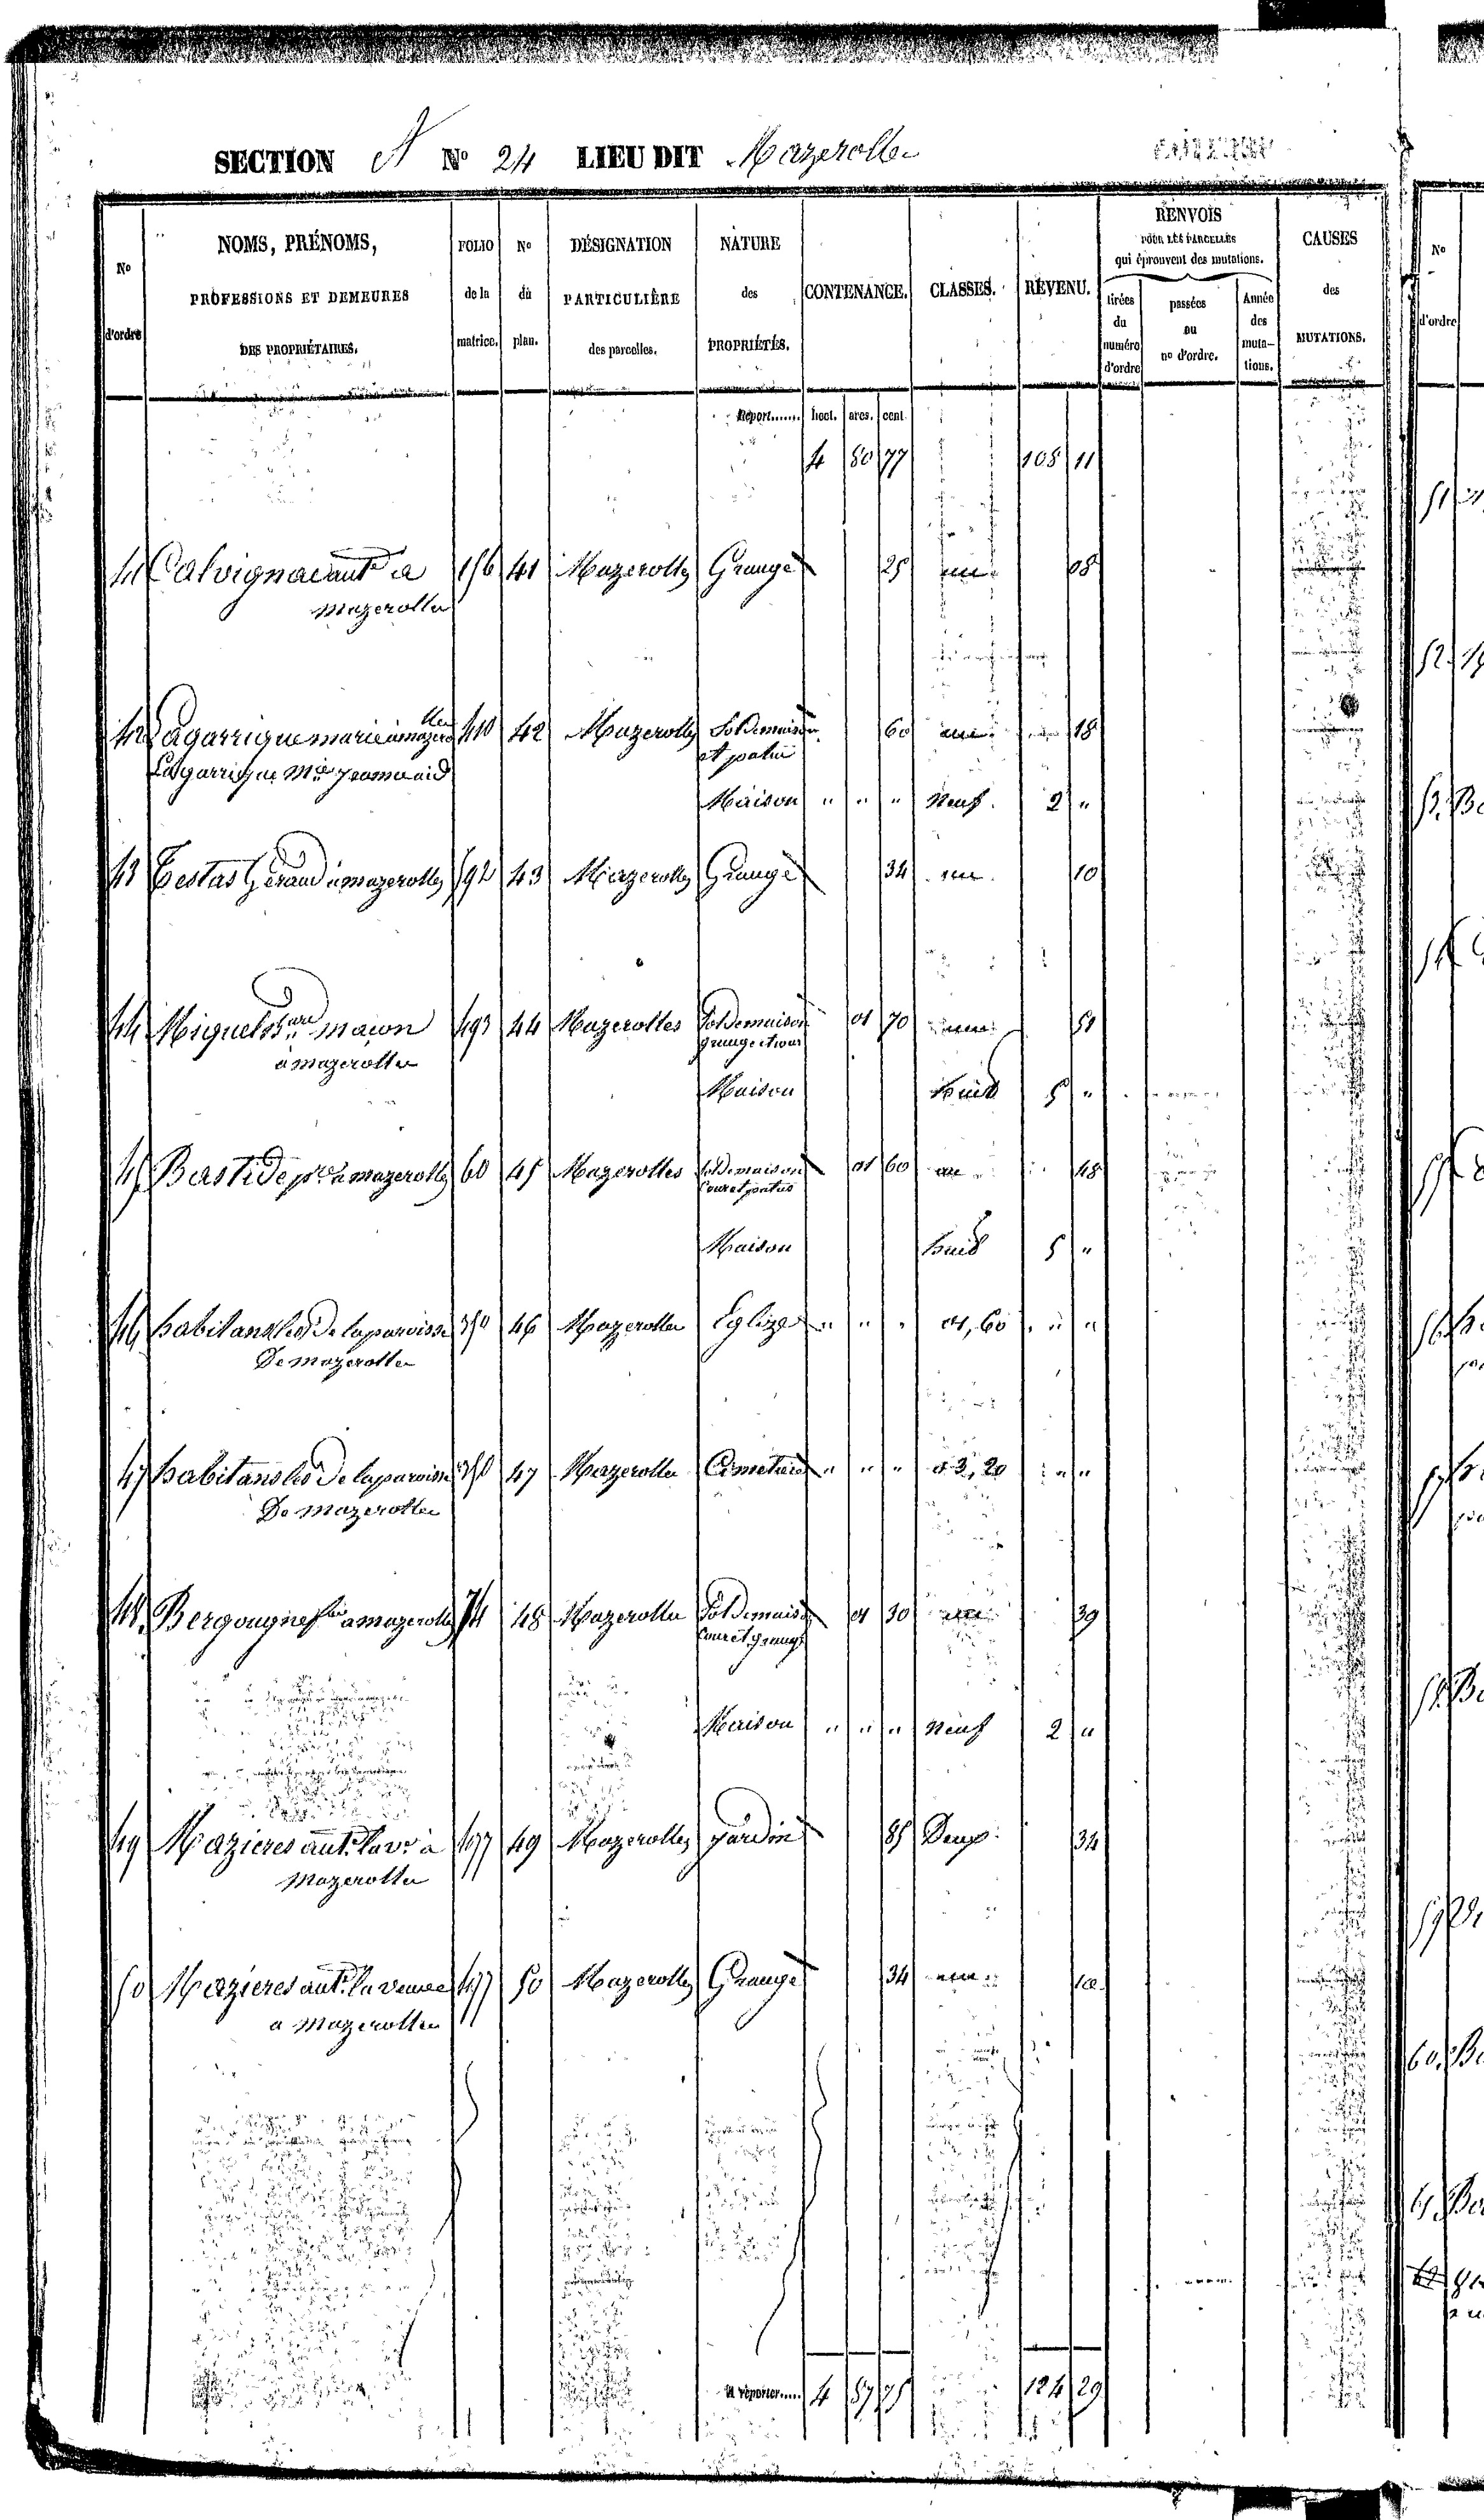 SECTION A No 24 LIEU DIT Mazerolles
No d'ordre | NOMS, PRÉNOMS, PROFESSIONS ET DEMEURES DES PROPRIÉTAIRES. | FOLIO de la matrice. | No du plan. | DÉSIGNATION PARTICULIÈRE des parcelles. | NATURE des PROPRIÉTÉS. | CONTENANCE. | CLASSES. | REVENU. | RENVOIS POUR LES PARCELLES qui éprouvent des mutations. | CAUSES des MUTATIONS.
tirées du numéro d'ordre | passées au no d'ordre. | Année des mutations.
Report...... hect. ares. cent.
4 80 77 108 11
41 Calvignac ante a 156 41 Mazerolles Grange 25 une 08
Mazerolles
42 Lagarrigue marie a mazerolles 410 42 Mazerolles Sol de maison 60 une 18
et patus
Lagarrigue Mie
Maison " " " Neuf 2 "
43 Testas Geraud a mazerolles 592 43 Mazerolles Grange 34 une 10
44 Miquel maçon 493 44 Mazerolles Sol de maison 01 70 une 51
grange et cour
a mazerolles
Maison huit 5 "
45 Bastide pre a mazerolles 60 45 Mazerolles Sol de maison 01 60 une 48
Cour et patus
Maison huit 5 "
46 habitans les De la paroisse 350 46 Mazerolles Eglize " " " 01,60 " "
De mazerolles
47 habitans les De la paroisse 350 47 Mazerolles Cimetiere " " " 03,20 " "
De mazerolles
48 Bergougne a mazerolles 74 48 Mazerolles Sol de maison 01 30 une 39
Cour et grange
Maison " " " Neuf 2 "
49 Mazieres ante la ve à 477 49 Mazerolles jardin 85 Deux 34
Mazerolles
50 Mazieres ante la veuve 477 50 Mazerolles Grange 34 une 10
a Mazerolles
A reporter..... 4 87 75 124 29